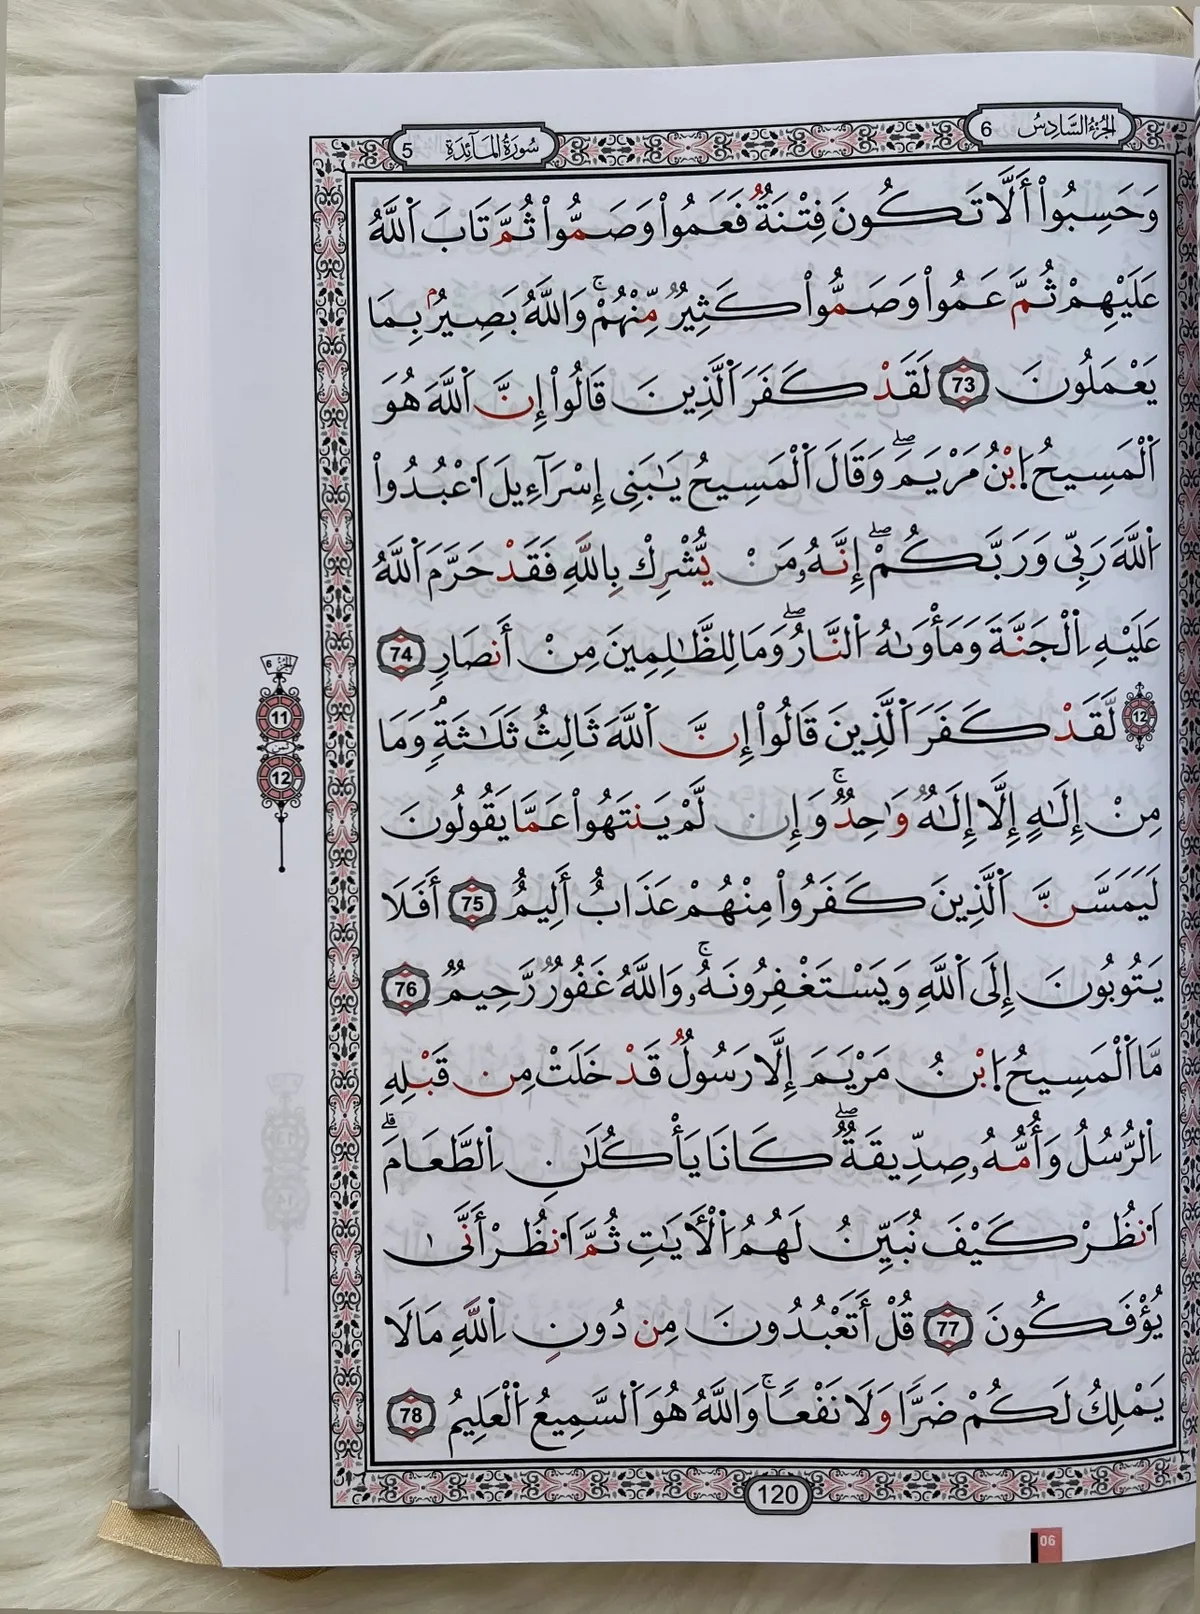 سُورَةُ المَائِدَةِ 5
الجُزْءُ السَّادِسُ 6
وَحَسِبُوٓاْ أَلَّا تَكُونَ فِتْنَةٌ فَعَمُواْ وَصَمُّواْ ثُمَّ تَابَ اَللَّهُ
عَلَيْهِمْ ثُمَّ عَمُواْ وَصَمُّواْ كَثِيرٌ مِّنْهُمْۚ وَاللَّهُ بَصِيرُۢ بِمَا
يَعْمَلُونَ 73 لَقَدْ كَفَرَ اَلَّذِينَ قَالُوٓاْ إِنَّ اَللَّهَ هُوَ
اَلْمَسِيحُ اُبْنُ مَرْيَمَۖ وَقَالَ اَلْمَسِيحُ يَٰبَنِىٓ إِسْرَآءِيلَ اَعْبُدُواْ
اُللَّهَ رَبِّى وَرَبَّكُمْۖ إِنَّهُۥ مَنْ يُّشْرِكْ بِاللَّهِ فَقَدْ حَرَّمَ اَللَّهُ
عَلَيْهِ اِلْجَنَّةَ وَمَأْوَىٰهُ اُلنَّارُۖ وَمَا لِلظَّٰلِمِينَ مِنْ أَنصَارٍ 74
12 لَّقَدْ كَفَرَ اَلَّذِينَ قَالُوٓاْ إِنَّ اَللَّهَ ثَالِثُ ثَلَٰثَةٍ وَمَا
مِنْ إِلَٰهٍ إِلَّآ إِلَٰهٌ وَٰحِدٌۚ وَإِن لَّمْ يَنتَهُواْ عَمَّا يَقُولُونَ
لَيَمَسَّنَّ اَلَّذِينَ كَفَرُواْ مِنْهُمْ عَذَابٌ أَلِيمٌ 75 أَفَلَا
يَتُوبُونَ إِلَى اَللَّهِ وَيَسْتَغْفِرُونَهُۥۚ وَاللَّهُ غَفُورٌ رَّحِيمٌ 76
مَّا اَلْمَسِيحُ اُبْنُ مَرْيَمَ إِلَّا رَسُولٌ قَدْ خَلَتْ مِن قَبْلِهِ
اِلرُّسُلُ وَأُمُّهُۥ صِدِّيقَةٌۖ كَانَا يَأْكُلَٰنِ اِلطَّعَامَۗ
اَنظُرْ كَيْفَ نُبَيِّنُ لَهُمُ اُلْأٓيَٰتِ ثُمَّ اَنظُرْ أَنَّىٰ
يُؤْفَكُونَ 77 قُلْ أَتَعْبُدُونَ مِن دُونِ اِللَّهِ مَا لَا
يَمْلِكُ لَكُمْ ضَرًّا وَلَا نَفْعًاۚ وَاللَّهُ هُوَ اَلسَّمِيعُ اُلْعَلِيمُ 78
الجزء 6
11
12
120
06